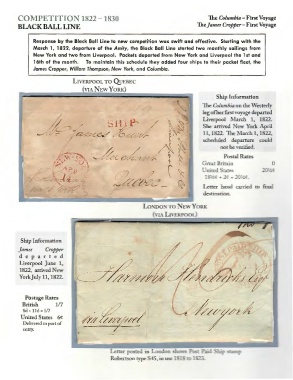 COMPETITION 1822 – 1830
BLACK BALL LINE
The Columbia – First Voyage
The James Cropper – First Voyage
Response by the Black Ball Line to new competition was swift and effective. Starting with the
March 1, 1822, departure of the Amity, the Black Ball Line started two monthly sailings from
New York and two from Liverpool. Packets departed from New York and Liverpool the 1st and
16th of the month. To maintain this schedule they added four ships to their packet fleet, the
James Cropper, William Thompson, New York, and Columbia.
LIVERPOOL TO QUEBEC
(VIA NEW YORK)
SHIP
Mr James
Merchant
Quebec
Ship Information
The Columbia on the Westerly
leg of her first voyage departed
Liverpool March 1, 1822.
She arrived New York April
11, 1822. The March 1, 1822,
scheduled departure could
not be verified.
Postal Rates
Great Britain 0
United States 20½¢
18½¢ + 2¢ = 20½¢.
Letter hand carried to final
destination.
LONDON TO NEW YORK
(VIA LIVERPOOL)
Ship Information
James Cropper
departed
Liverpool June 1,
1822, arrived New
York July 11, 1822.
Postage Rates
British 1/7
United States 6¢
Delivered to port of
entry.
Newyork
via Liverpool
Letter posted in London shows Post Paid Ship stamp
Robertson type S45, in use 1818 to 1823.